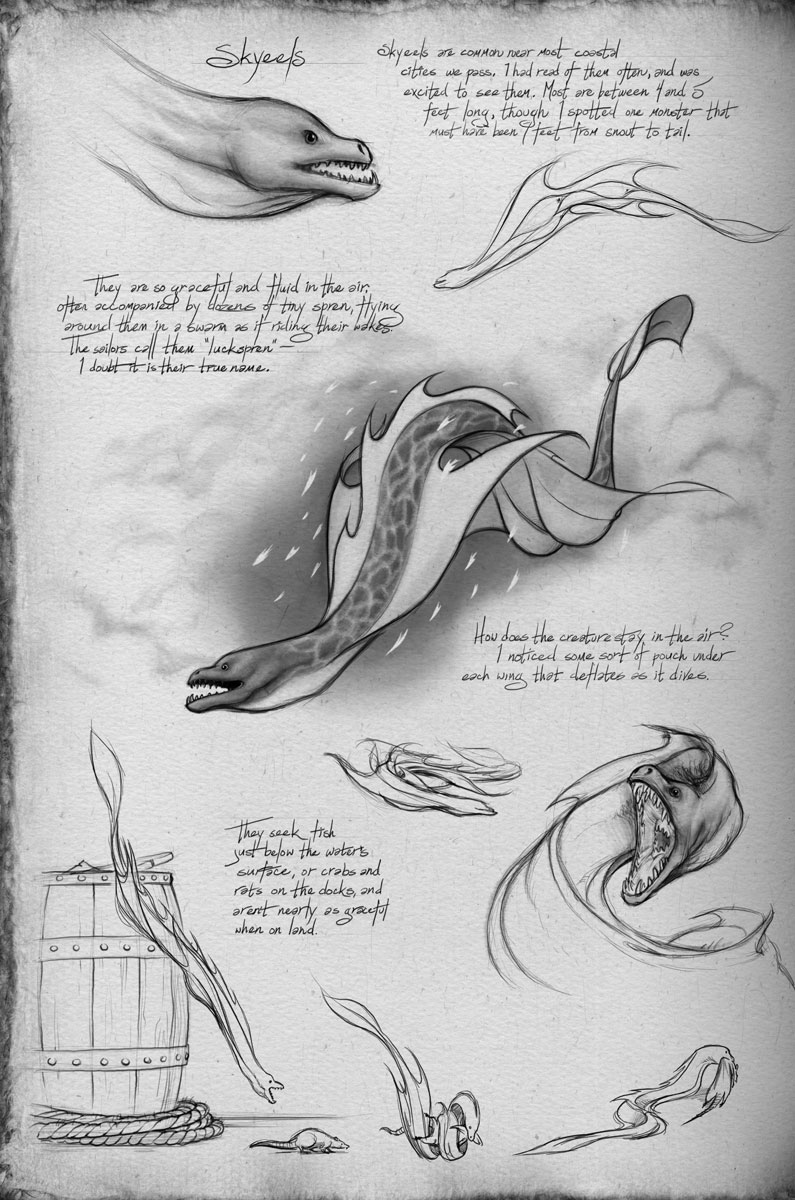 Skyeels
Skyeels are common near most coastal
cities we pass. I had read of them often, and was
excited to see them. Most are between 4 and 5
feet long, though I spotted one monster that
must have been 9 feet from snout to tail.
They are so graceful and fluid in the air,
often accompanied by dozens of tiny spren, flying
around them in a swarm as if riding their wakes.
The sailors call them "luckspren"—
I doubt it is their true name.
How does the creature stay in the air?
I noticed some sort of pouch under
each wing that deflates as it dives.
They seek fish
just below the water's
surface, or crabs and
rats on the docks, and
aren't nearly as graceful
when on land.